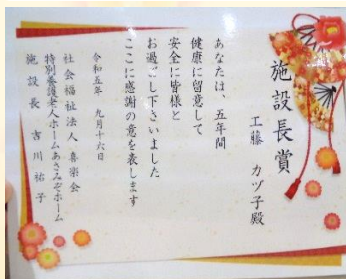 施設長賞
工藤 カヅ子殿
あなたは、五年間
健康に留意して
安全に皆様と
お過ごし下さいました
ここに感謝の意を表します
令和五年 九月十六日
社会福祉法人 喜楽会
特別養護老人ホームあさみぞホーム
施設長 吉川祐子